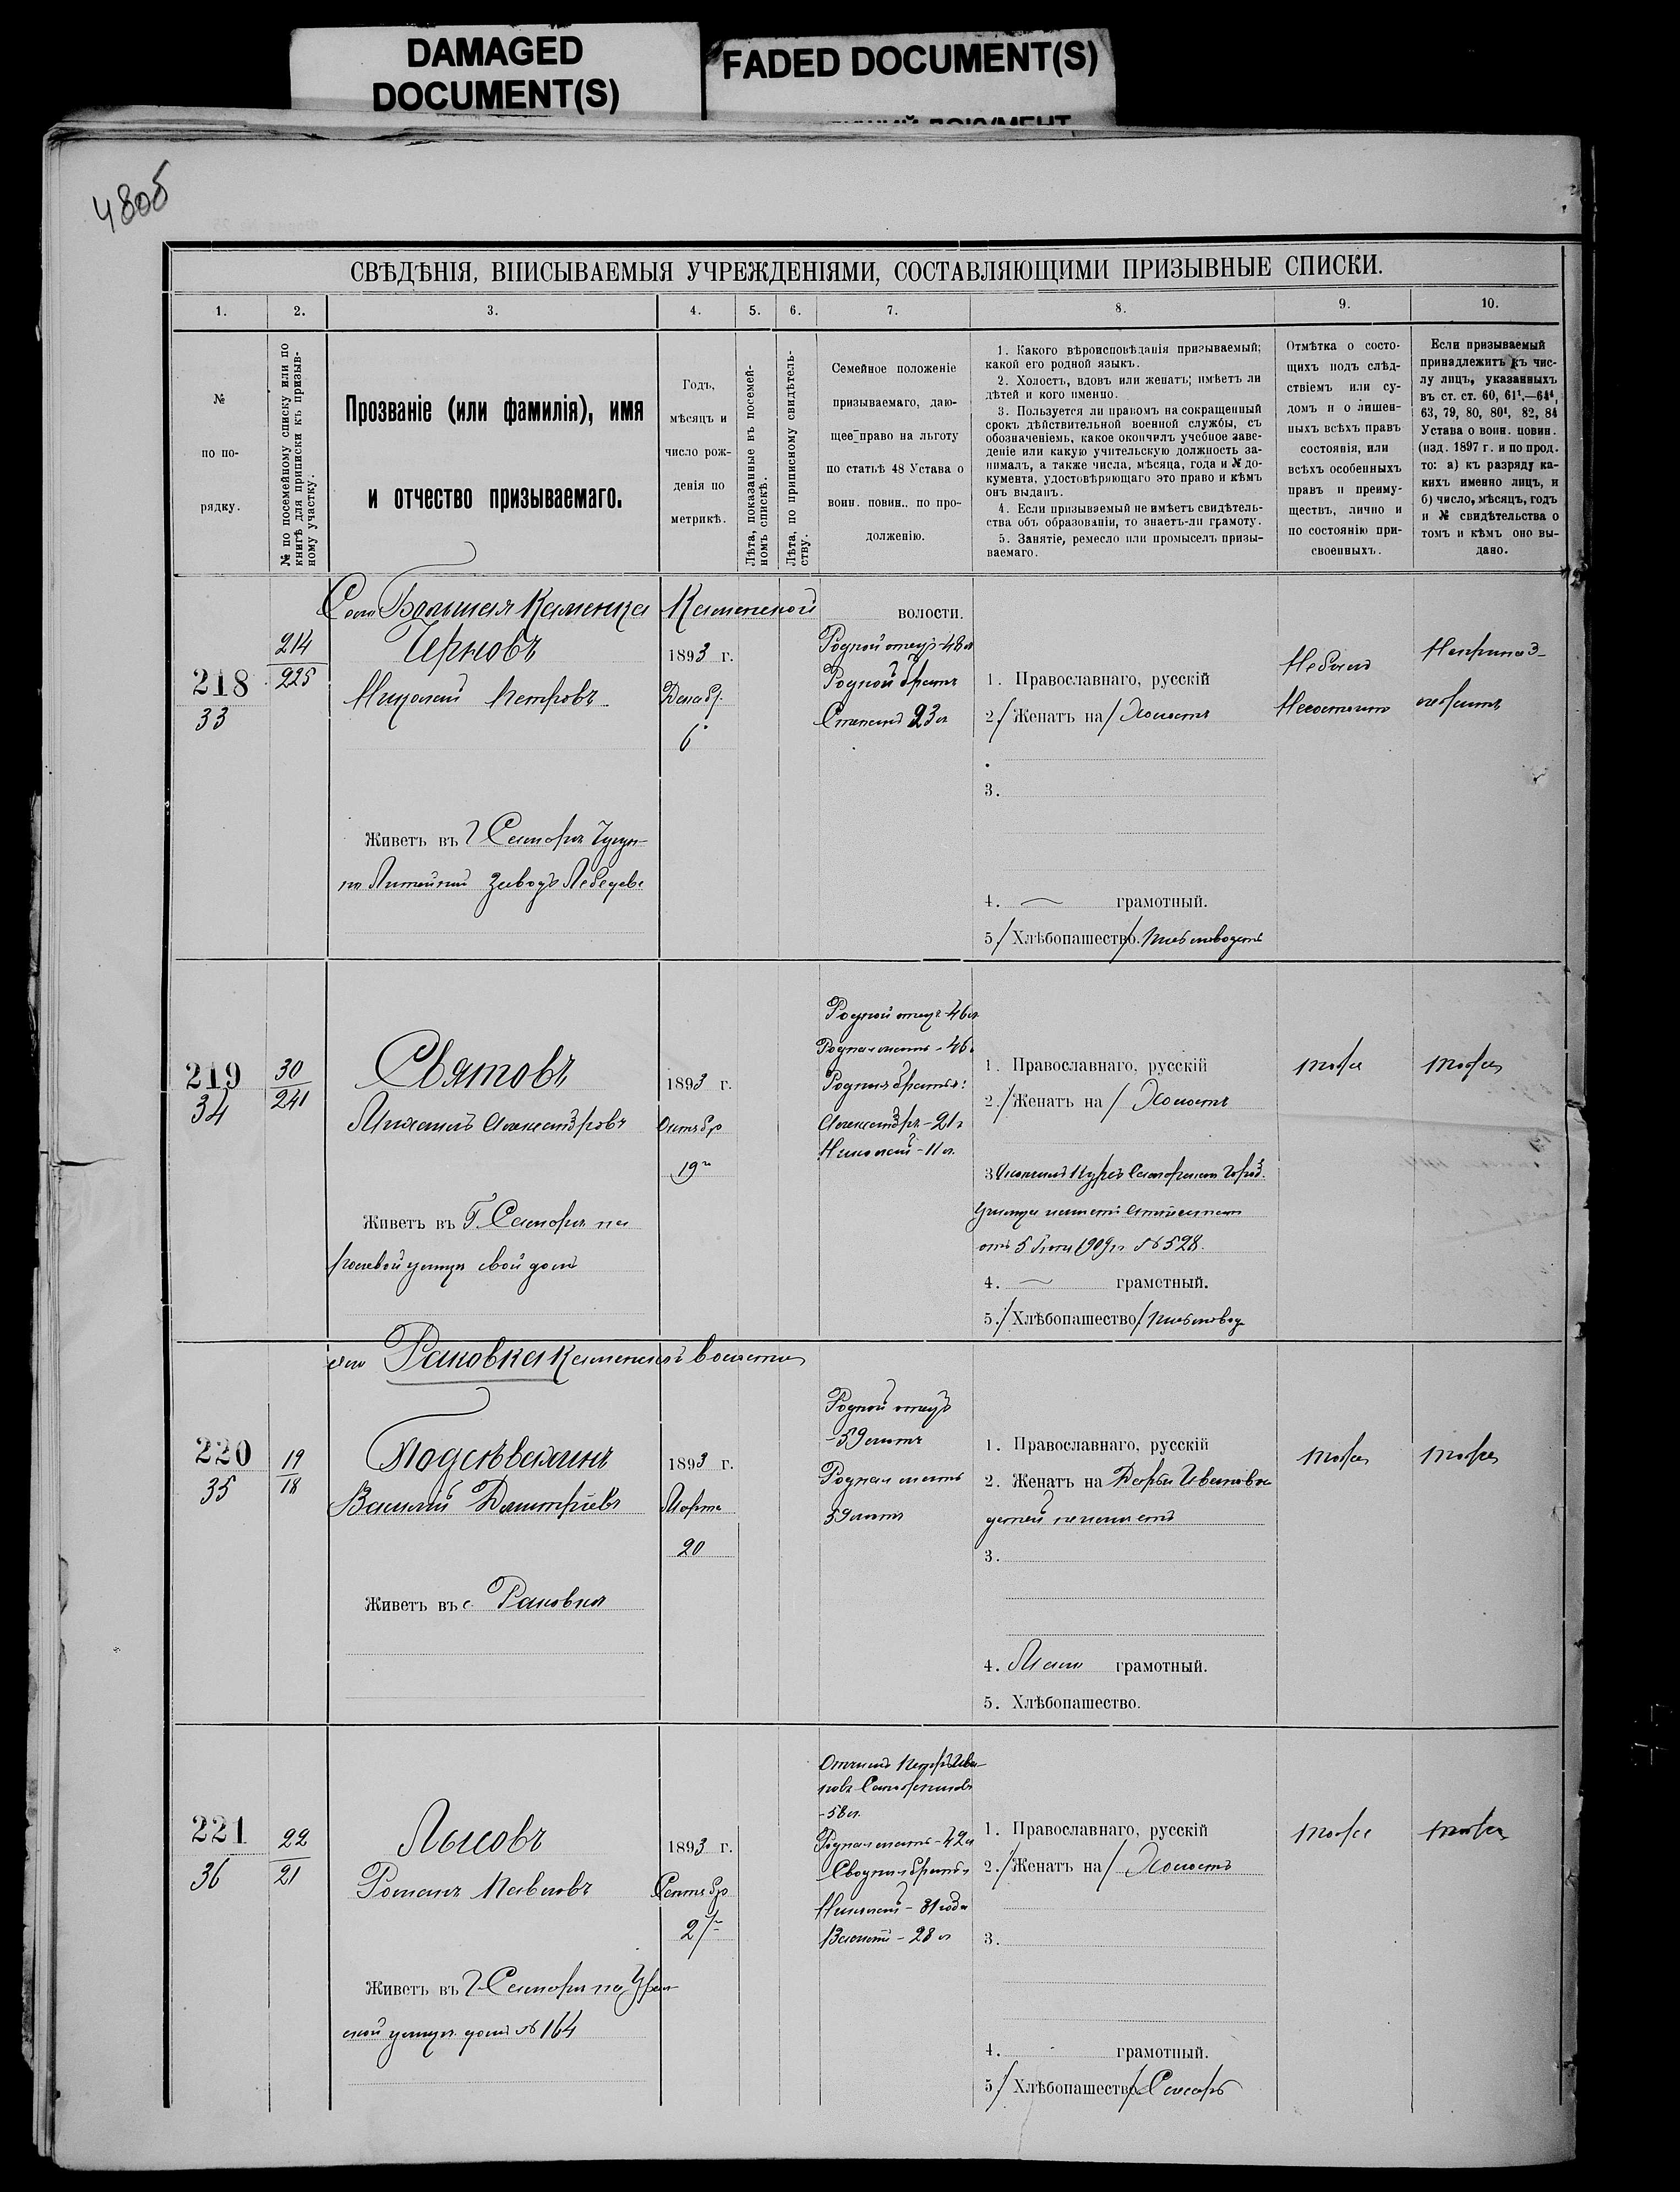 DAMAGED
DOCUMENT(S)
FADED DOCUMENT(S)
480б
СВѢДѢНІЯ, ВПИСЫВАЕМЫЯ УЧРЕЖДЕНІЯМИ, СОСТАВЛЯЮЩИМИ ПРИЗЫВНЫЕ СПИСКИ.
1.
2.
3.
4.
5.
6.
7.
8.
9.
10.
№
по по-
рядку.
№ по посемейному списку или по
книгѣ для приписки къ призыв-
ному участку.
Прозваніе (или фамилія), имя
и отчество призываемаго.
Годъ,
мѣсяцъ и
число рож-
денія по
метрикѣ.
Лѣта, показанные въ посемей-
номъ спискѣ.
Лѣта, по приписному свидѣтель-
ству.
Семейное положеніе
призываемаго, даю-
щее право на льготу
по статьѣ 48 Устава о
воин. повин., по про-
долженію.
1. Какого вѣроисповѣданія призываемый;
какой его родной языкъ.
2. Холостъ, вдовъ или женатъ; имѣетъ ли
дѣтей и кого именно.
3. Пользуется ли правомъ на сокращенный
срокъ дѣйствительной военной службы, съ
обозначеніемъ, какое окончилъ учебное заве-
деніе или какую учительскую должность за-
нималъ, а также числа, мѣсяца, года и № до-
кумента, удостовѣряющаго это право и кѣмъ
онъ выданъ.
4. Если призываемый не имѣетъ свидѣтель-
ства объ образованіи, то знаетъ-ли грамоту.
5. Занятіе, ремесло или промыселъ призы-
ваемаго.
Отмѣтка о состо-
щихъ подъ слѣд-
ствіемъ или су-
домъ и о лишен-
ныхъ всѣхъ правъ
состоянія, или
всѣхъ особенныхъ
правъ и преиму-
ществъ, лично и
по состоянію при-
своенныхъ.
Если призываемый
принадлежитъ къ чис-
лу лицъ, указанныхъ
въ ст. ст. 60, 61¹,—64⁴,
63, 79, 80, 80¹, 82, 84
Устава о воин. повин.
(изд. 1897 г. и по прод.
то: а) къ разряду ка-
кихъ именно лицъ, и
б) число, мѣсяцъ, годъ
и № свидѣтельства о
томъ и кѣмъ оно вы-
дано.
Село Большая Каменка Каменской волости.
218
33
214
225
Черновъ
Николай Петровъ
1893 г.
Декабр.
6
Родной отецъ-48л
Родной братъ
Степанъ 23л
1. Православнаго, русскій
2. Женатъ на Холостъ
3.
4. грамотный.
5. Хлѣбопашество.
Небылъ
Несостоитъ
Живетъ въ г Самарѣ Чугун-
но Литейный заводъ Лебедева
219
34
30
241
Святовъ
Михаилъ Александровъ
1893 г.
Октябр
19
Родной отецъ-46л.
Родная мать-46
Родные братья:
Александръ-21г
Николай-11л.
1. Православнаго, русскій
2. Женатъ на Холостъ
3 Окончилъ Курсъ Самарскаго Город.
от 5 Іюня 1909г № 528.
4. грамотный.
5. Хлѣбопашество
тоже
тоже
Живетъ въ Г. Самарѣ на
Полевой улицѣ свой домъ
село Раковка Каменской волости
220
35
19
18
Подсѣвалинъ
Василій Дмитріевъ
1893 г.
Марта
20
Родной отецъ
-59 лѣтъ
Родная мать
59 лѣтъ
1. Православнаго, русскій
2. Женатъ на Дарьи Ивановой
дѣтей не имѣетъ
3.
4. Мало грамотный.
5. Хлѣбопашество.
тоже
тоже
Живетъ въ с. Раковкѣ
221
36
22
21
Лысовъ
Романъ Павловъ
1893 г.
Сентябр
27
Отчимъ Петръ Ива-
новъ Сапожниковъ
-58л.
Родная мать-42л
Сводные братья
Николай-31 года
Василій-28л
1. Православнаго, русскій
2. Женатъ на Холостъ
3.
4. грамотный.
5. Хлѣбопашество. Слесарь
тоже
тоже
Живетъ въ г Самарѣ на Ураль-
ской улицѣ домъ № 164